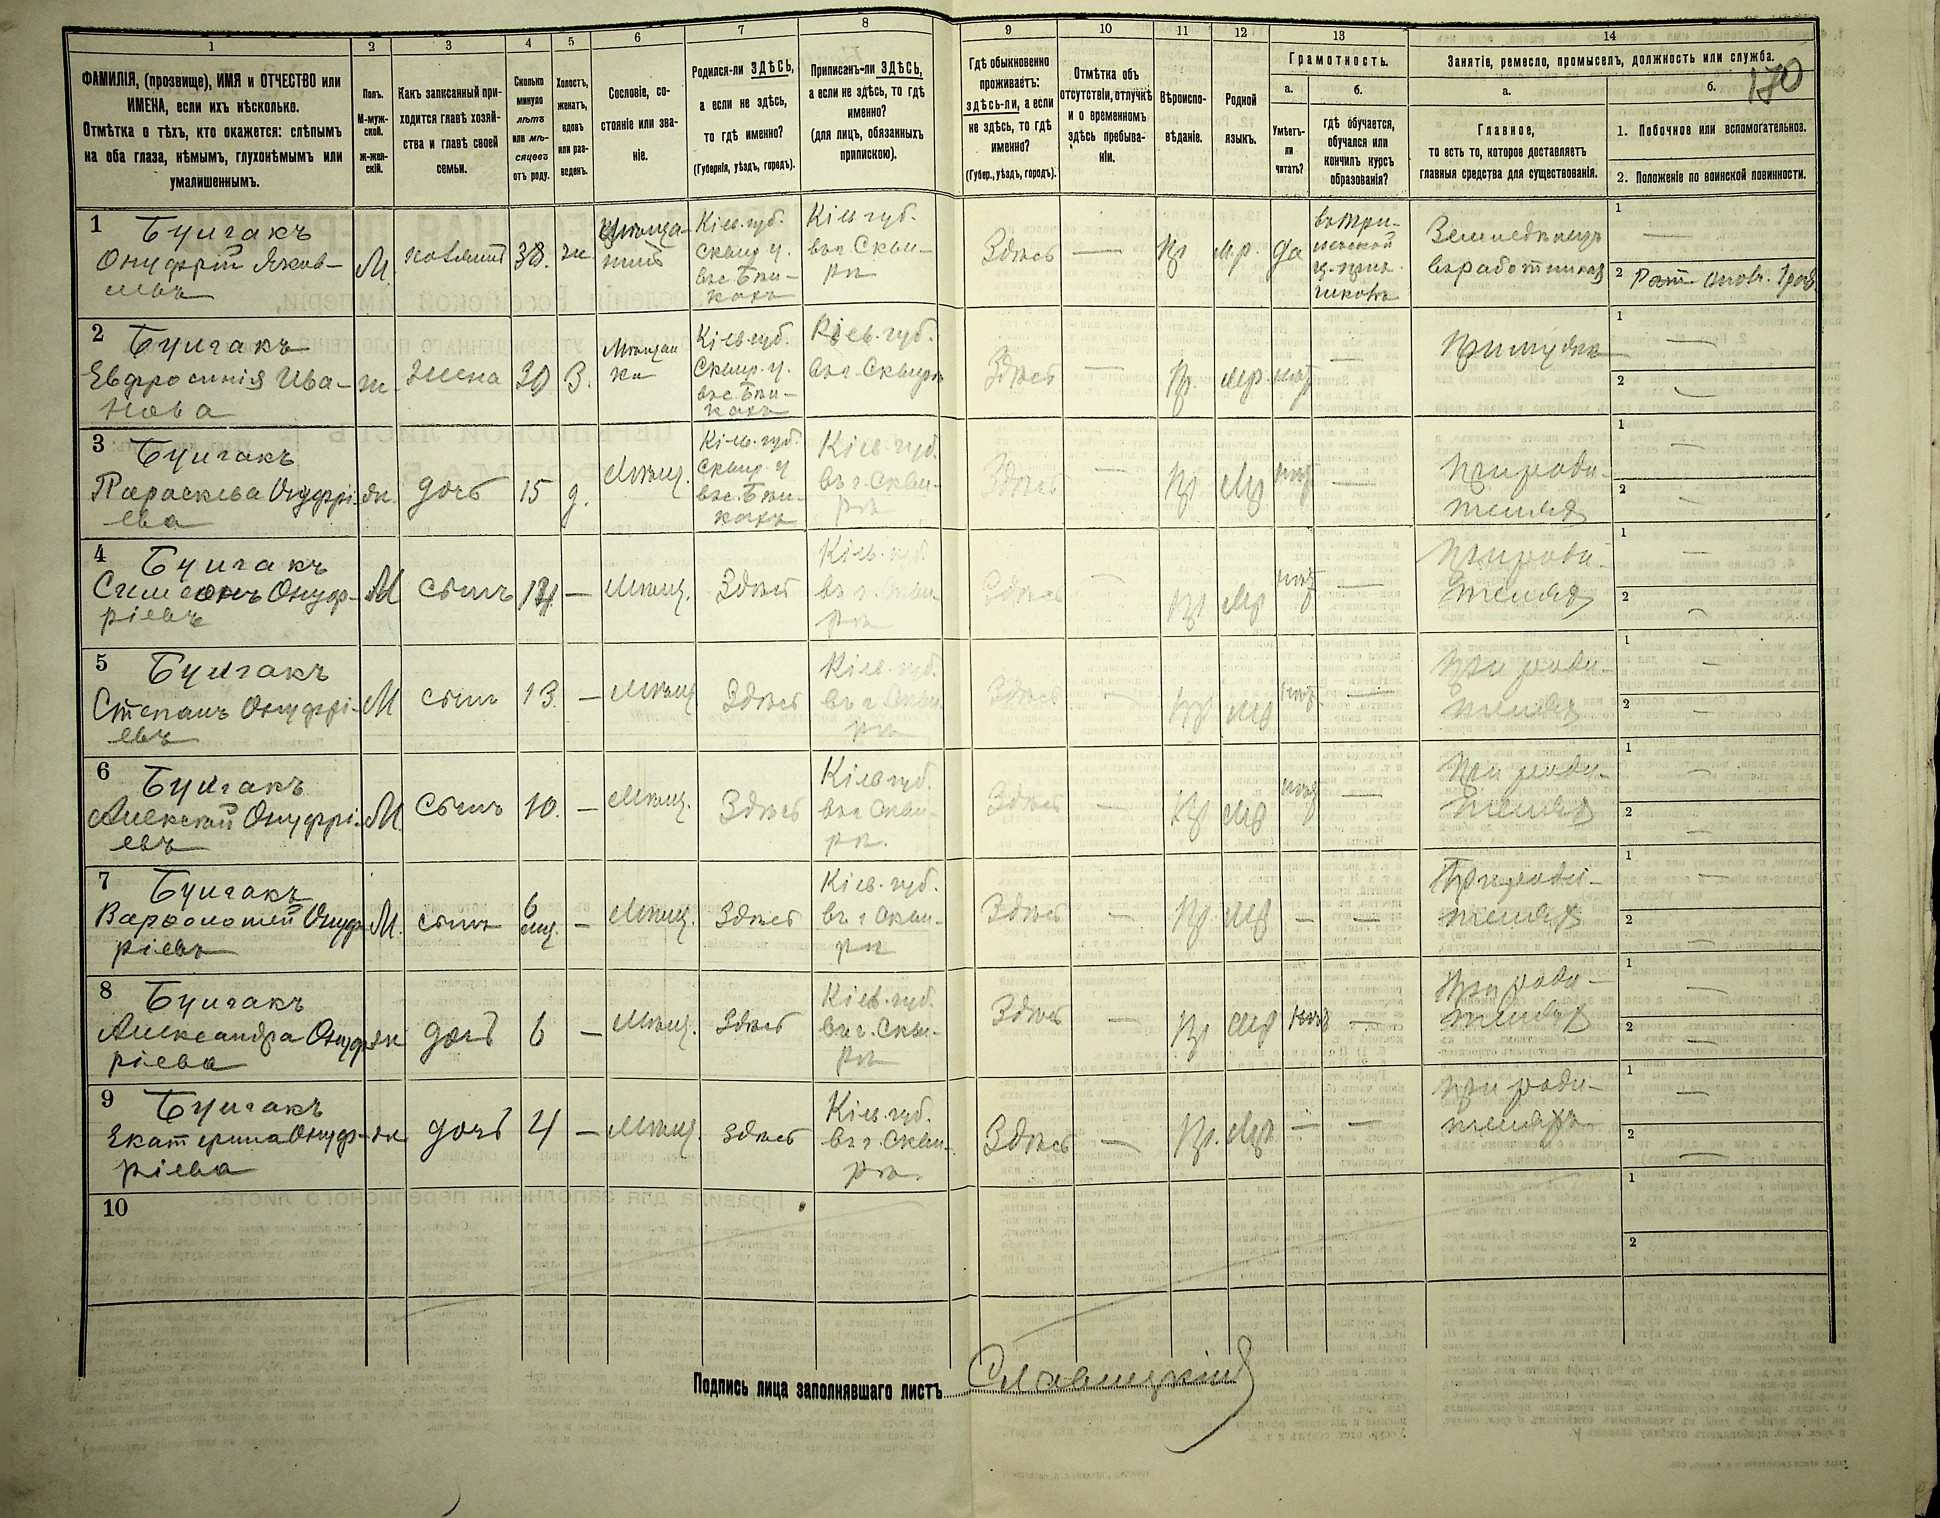 170
1
2
3
4
5
6
7
8
9
10
11
12
13
14
ФАМИЛІЯ, (прозвище), ИМЯ и ОТЧЕСТВО или
ИМЕНА, если ихъ нѣсколько.
Отмѣтка о тѣхъ, кто окажется: слѣпымъ
на оба глаза, нѣмымъ, глухонѣмымъ или
умалишеннымъ.
Полъ.
М-муж-
ской.
ж-жен-
скій.
Какъ записанный при-
ходится главѣ хозяй-
ства и главѣ своей
семьи.
Сколько
минуло
лѣтъ
или мѣ-
сяцевъ
отъ роду.
Холостъ,
женатъ,
вдовъ
или раз-
веденъ.
Сословіе, со-
стояніе или зва-
ніе.
Родился-ли ЗДѢСЬ,
а если не здѣсь,
то гдѣ именно?
(Губернія, уѣздъ, городъ).
Приписанъ-ли ЗДѢСЬ,
а если не здѣсь, то гдѣ
именно?
(для лицъ, обязанныхъ
припискою).
Гдѣ обыкновенно
проживаетъ:
здѣсь-ли, а если
не здѣсь, то гдѣ
именно?
(Губер., уѣздъ, городъ).
Отмѣтка объ
отсутствіи, отлучкѣ
и о временномъ
здѣсь пребыва-
ніи.
Вѣроиспо-
вѣданіе.
Родной
языкъ.
Грамотность.
а.
Умѣетъ-
ли
читать?
б.
гдѣ обучается,
обучался или
кончилъ курсъ
образованія?
Занятіе, ремесло, промыселъ, должность или служба.
а.
Главное,
то есть то, которое доставляетъ
главныя средства для существованія.
б.
1. Побочное или вспомогательное.
2. Положеніе по воинской повинности.
1
Булгакъ
Онуфрій Яков-
левъ
М
хозяинъ
38.
ж.
Мѣща-
нинъ
Кіев. губ.
Сквир. у.
въ с. Бѣли-
кахъ
Кіев губ.
въ г. Скви-
рѣ
Здѣсь
—
Пр
м.р.
да
Земледѣлецъ
1
—
2
2
Булгакъ
Евфросинія Ива-
нова
ж.
жена
39
З.
Мѣщан
ка
Кіев. губ.
Сквир. у.
Кіев. губ.
въ г. Сквирѣ
Здѣсь
—
Пр.
м.р.
нѣт
—
При мужѣ
1
—
2
—
3
Булгакъ
Параскева Онуфрі-
ева
ж.
дочь
15
д.
Мѣщ.
Кіев. губ.
Сквир. у
Кіев. губ.
въ г. Скви-
рѣ
Здѣсь
—
Пр
мр
нѣт
—
При роди-
теляхъ
1
—
2
—
4
Булгакъ
Симеонъ Онуф-
ріевъ
М
сынъ
14
—
Мѣщ.
Здѣсь
Кіев. губ.
въ г. Скви
рѣ
Здѣсь
—
Пр
мр
нѣт
—
При роди-
теляхъ
1
—
2
—
5
Булгакъ
Степанъ Онуфрі-
евъ
М
сынъ
13
—
Мѣщ
Здѣсь
Кіев. губ.
въ г. Скви
рѣ
Здѣсь
—
пр
мр
нѣт
—
При роди-
теляхъ
1
—
2
—
6
Булгакъ
Алексѣй Онуфрі-
евъ
М.
Сынъ
10.
—
Мѣщ.
Здѣсь
Кіев губ.
въ г Скви-
рѣ.
Здѣсь
—
Пр
мр
нѣт
—
При роди-
теляхъ
1
—
2
—
7
Булгакъ
Варфоломей Онуф
ріевъ
М.
сынъ
6
мѣс.
—
Мѣщ.
Здѣсь
Кіев. губ.
въ г Скви-
рѣ
Здѣсь
—
Пр
мр
—
—
При роди-
теляхъ
1
—
2
—
8
Булгакъ
Александра Онуф
ріева
ж
дочь
6
—
Мѣщ.
Здѣсь
Кіев. губ.
въ г. Скви-
рѣ
Здѣсь
—
Пр
мр
нѣт
—
При роди-
теляхъ
1
—
2
—
9
Булгакъ
Екатерина Онуф-
ріева
ж
дочь
4
—
Мѣщ.
Здѣсь
Кіев. губ.
въ г. Скви-
рѣ.
Здѣсь
—
Пр.
мр.
—
—
При роди-
теляхъ
1
—
2
—
10
1
2
Подпись лица заполнявшаго листъ